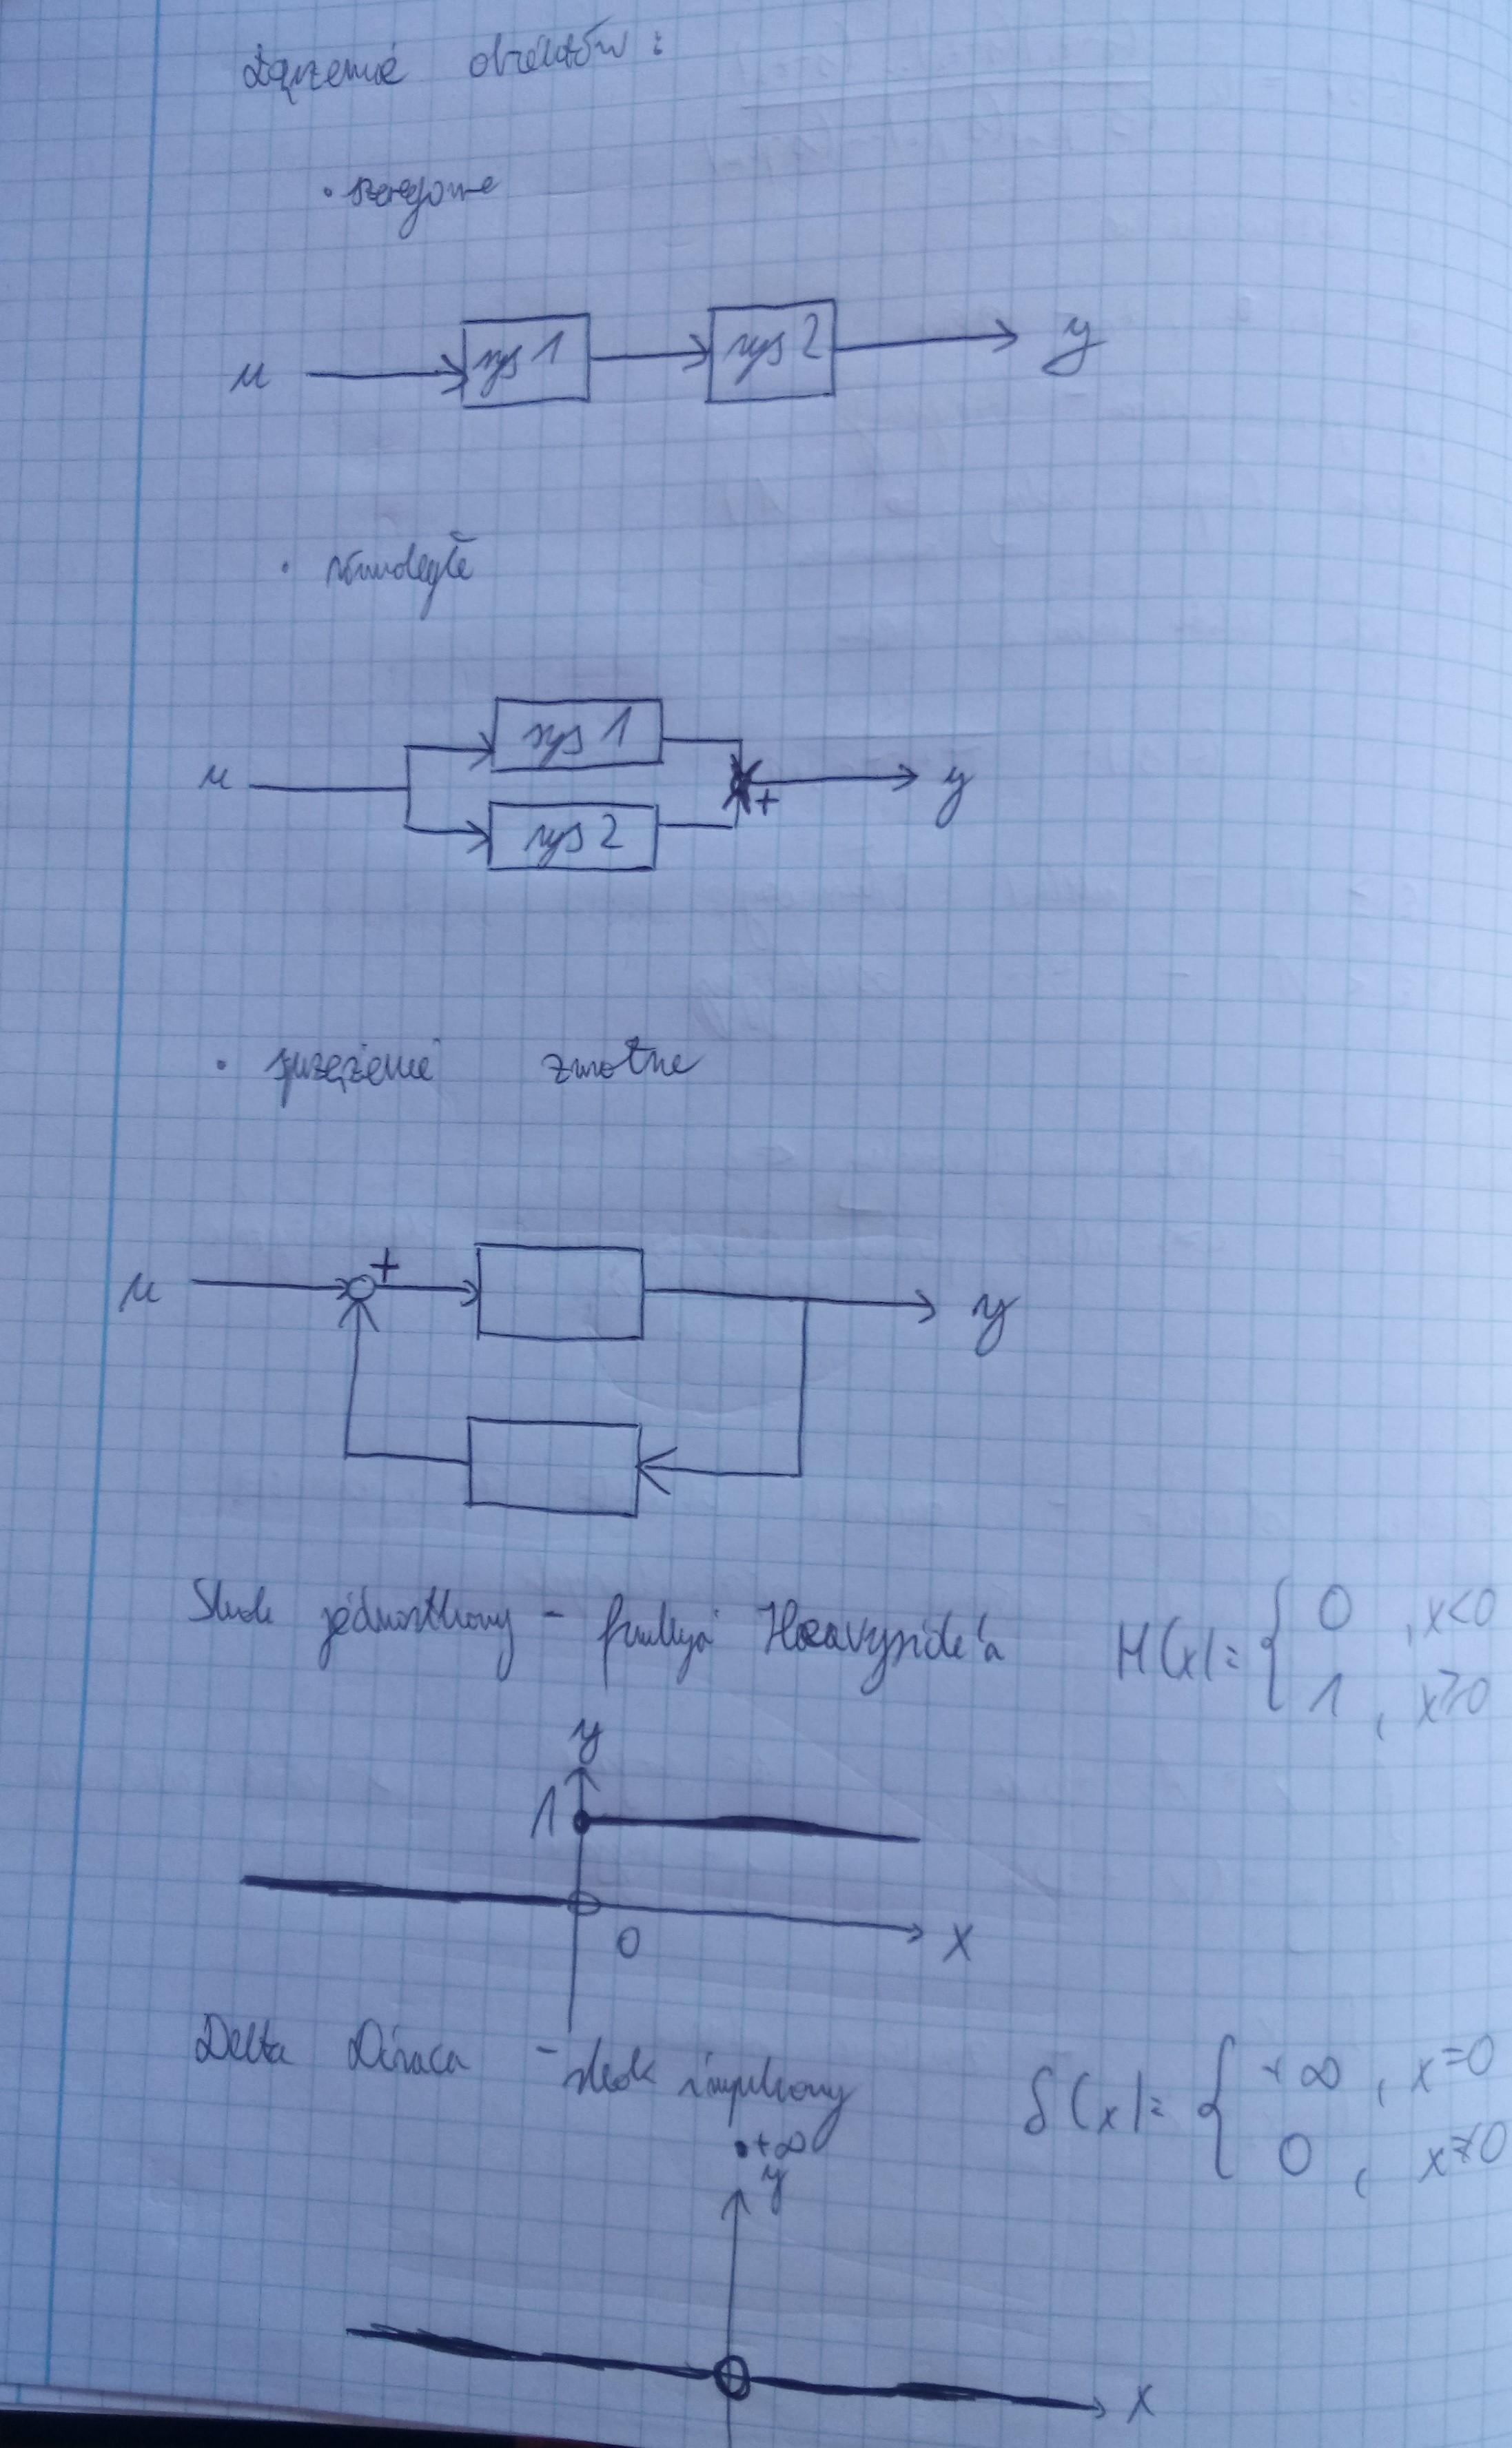 Łączenie obiektów:
• szeregowe
u sys 1 sys 2 y
• równoległe
sys 1
u + y
sys 2
• sprzężenie zwrotne
u + y
Skok jednostkowy - funkcja Heavyside'a H(x)= { 0 , x<0
1 , x≥0
y
1
0 x
Delta Diraca - skok impulsowy δ(x)= { +∞ , x=0
0 , x≠0
+∞
y
x